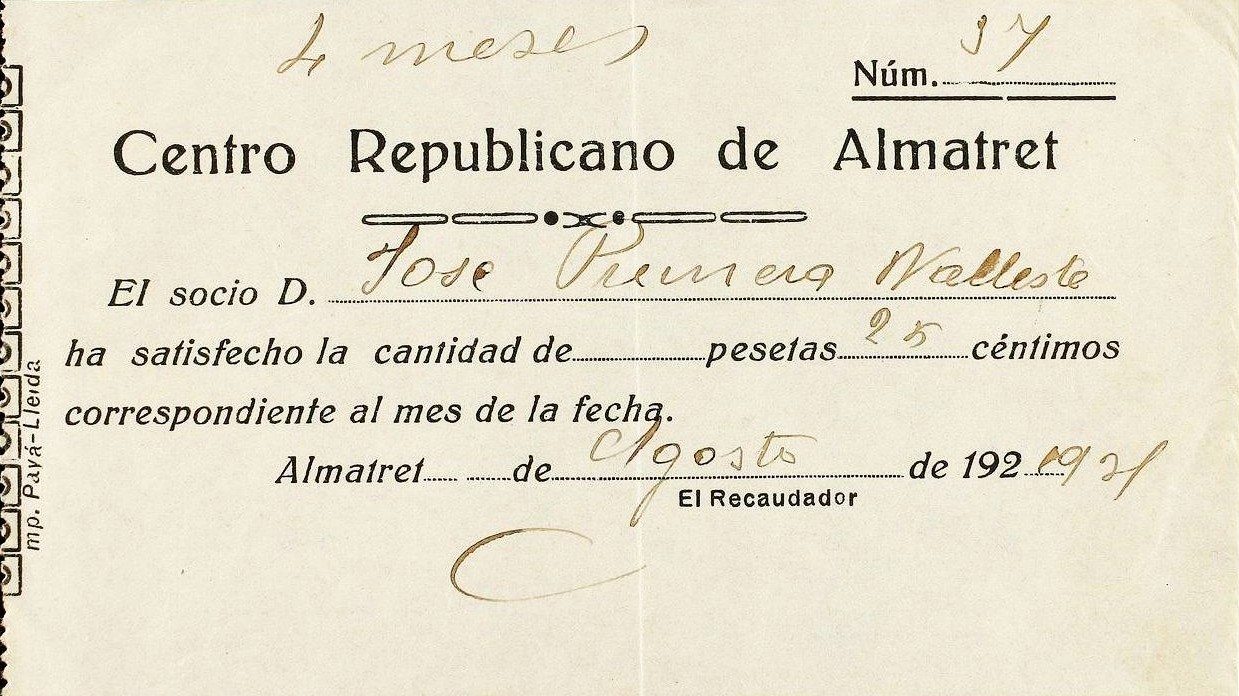 4 meses
Núm. 37
Centro Republicano de Almatret
El socio D. Jose
ha satisfecho la cantidad de pesetas 25 céntimos
correspondiente al mes de la fecha.
Almatret de Agosto de 192 1931
El Recaudador
mp. Payá-Lleida